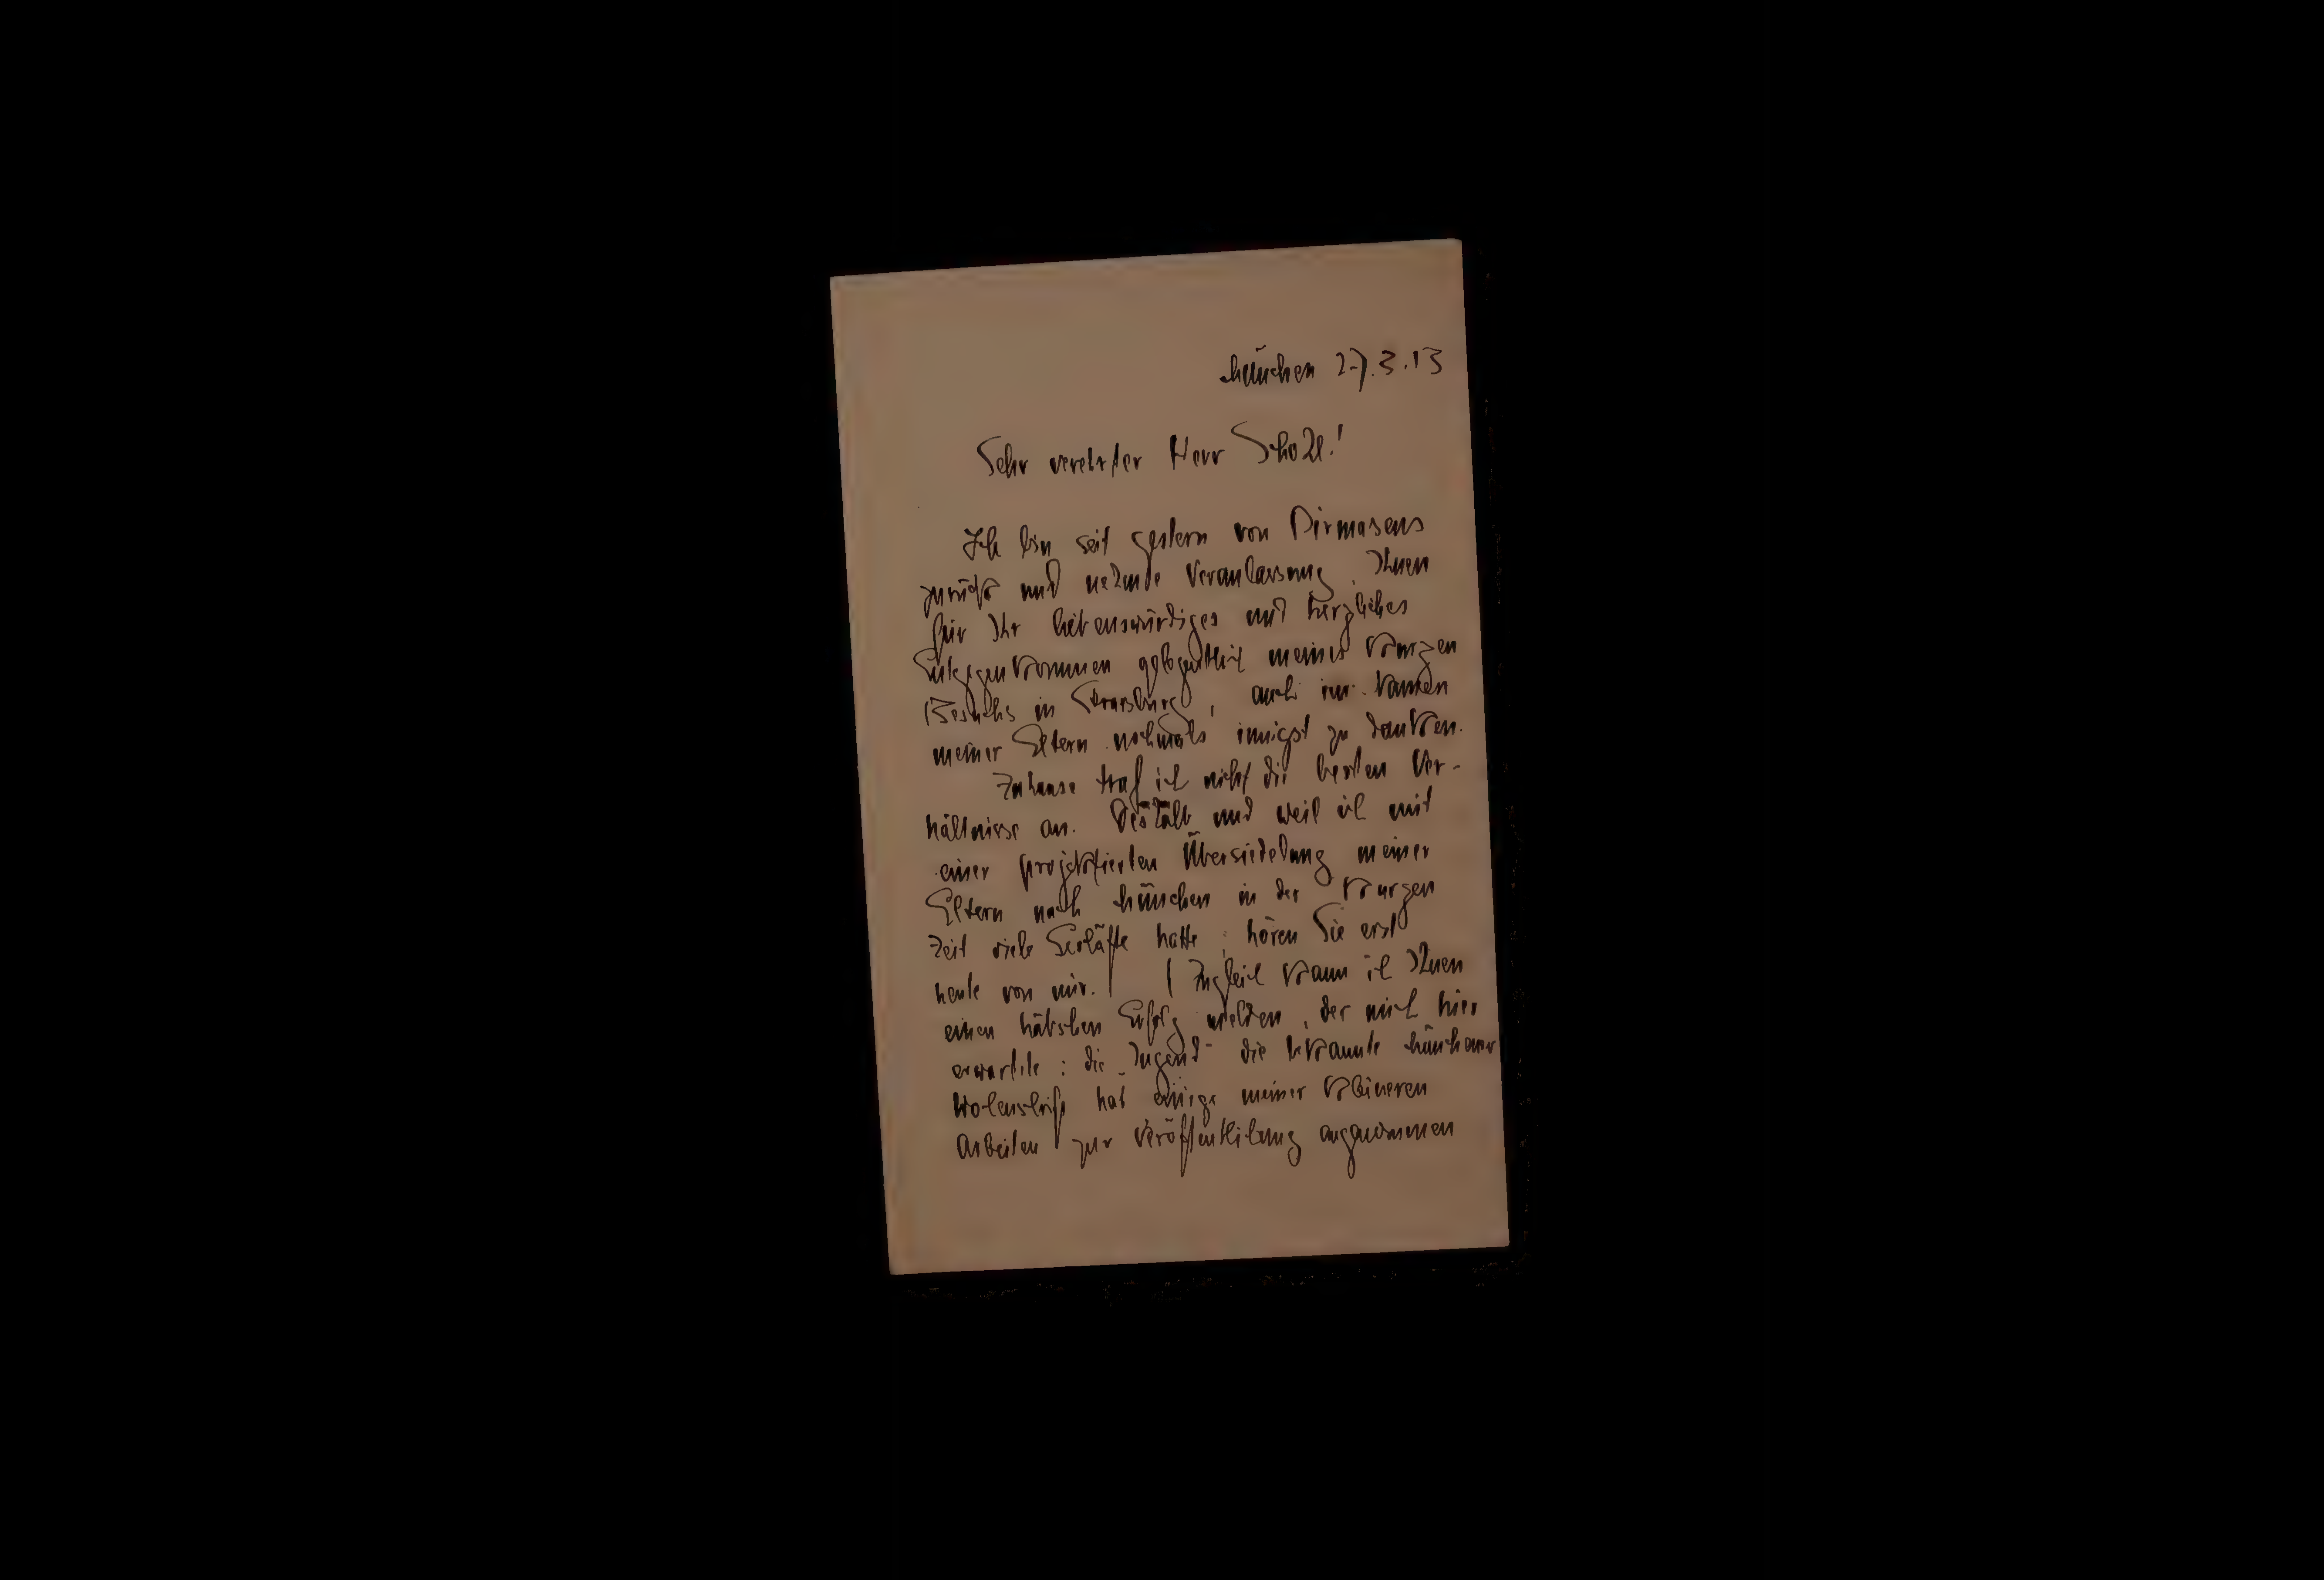 München 27.3.13
Sehr verehrter Herr Scholl!
Ich bin seit gestern von Pirmasens
zurück und nehme Veranlassung, Ihnen
für Ihr liebenswürdiges und herzliches
Entgegenkommen gelegentlich meines kurzen
Besuchs in Strassburg, auch im Namen
meiner Eltern nochmals innigst zu danken.
Zuhause traf ich nicht die besten Ver-
hältnisse an. Deshalb und weil ich mit
einer projektierten Übersiedelung meiner
Eltern nach München in der kurzen
Zeit viele Geschäfte hatte, hören Sie erst
heute von mir. | | Zugleich kann ich Ihnen
einen hübschen Erfolg melden, der mich hier
erwartete: die „Jugend" die bekannte Münchener
Wochenschrift hat einige meiner kleineren
Arbeiten zur Veröffentlichung angenommen